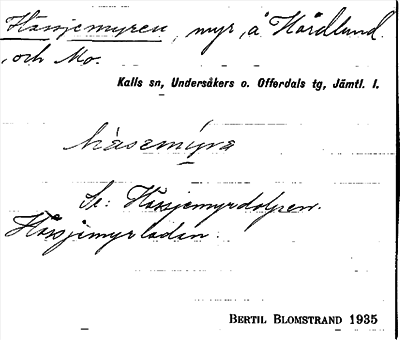 Hässjemyren, myr, å Hårdlund.
och Mo.
Kalls sn, Undersåkers o. Offerdals tg, Jämtl. l.
hàsemýra
Se: Hässjemyrdalpen.
Hässjemyrladan.
BERTIL BLOMSTRAND 1935